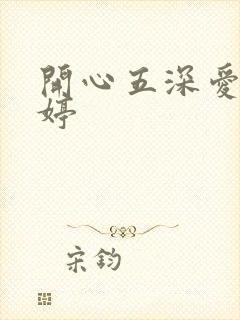 開心五深愛
婷
宋鈞